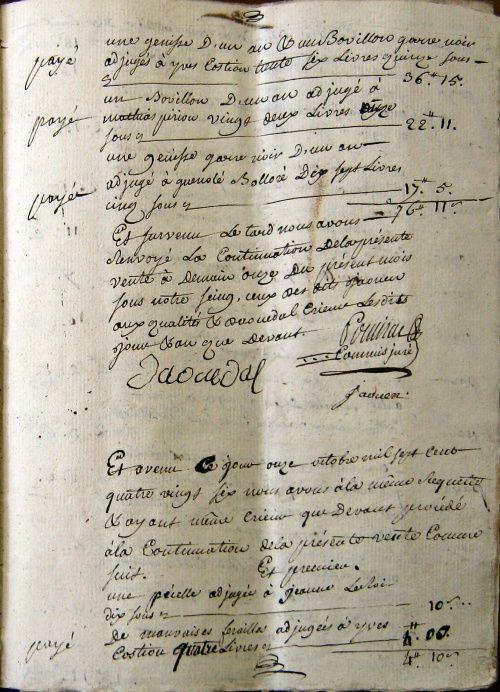 une genisse D'un an & un Bovillon garre noir
payé
adjugés à yves Costiou trente six Livres quinze sous
36# 15.
un Bovillon D'un an adjugé à
payé
mathias piriou vingt deux Livres onze
sous
22# 11.
une genisse garre noir D'un an
adjugé à guenolé Bolloré Dix sept Livres
payée
cinq sous
17# 5.
76# 11s
Et survenu Le tard nous avons
Renvoyé La Continuation Dela présente
vente à Demain onze Du présent mois
sous notre seing, ceux des dits Jaouen
aux qualités & Daouedal Crieur Lesdits
jour & an que Devant.
Commis juré
Daouedal
Jaouen.
Et avenu Ce jour onze octobre mil sept cent
quatre vingt six nous avons à la même Requette
& ayant même Crieur que Devant procédé
à la Continuation dela présente vente Comme
suit. Et premier.
une poëlle adjugée à jeanne LeRoi
dix sous
10s
De mauvaises ferailles adjugées à yves
payé
Costiou quatre Livres
4# 00.
4# 10s